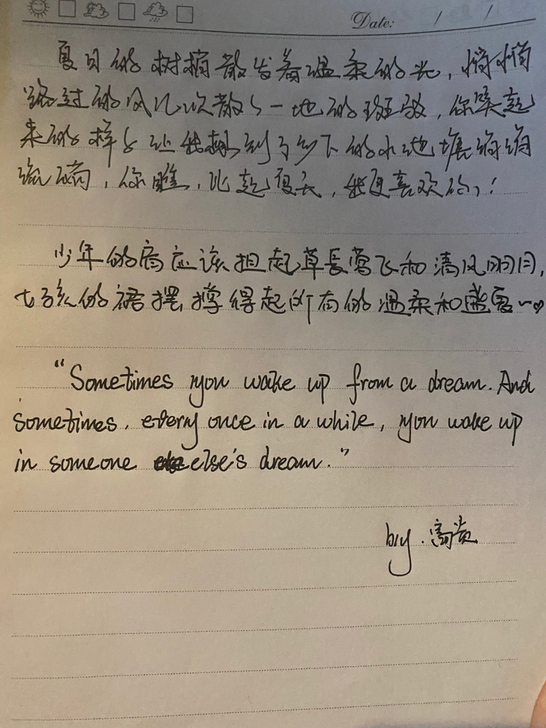 Date: / /
夏日的树梢散发着温柔的光，悄悄
路过的风儿吹散了一地的斑驳，你笑起
来的样子让我想到了乡下的小池塘
你瞧，比起夏天，我更喜欢你！
少年的肩应该担起草长莺飞和清风明月，
女孩的裙摆撑得起所有的温柔和盛夏～♡
“Sometimes you wake up from a dream. And
sometimes, every once in a while, you wake up
in someone else's dream.”
by.